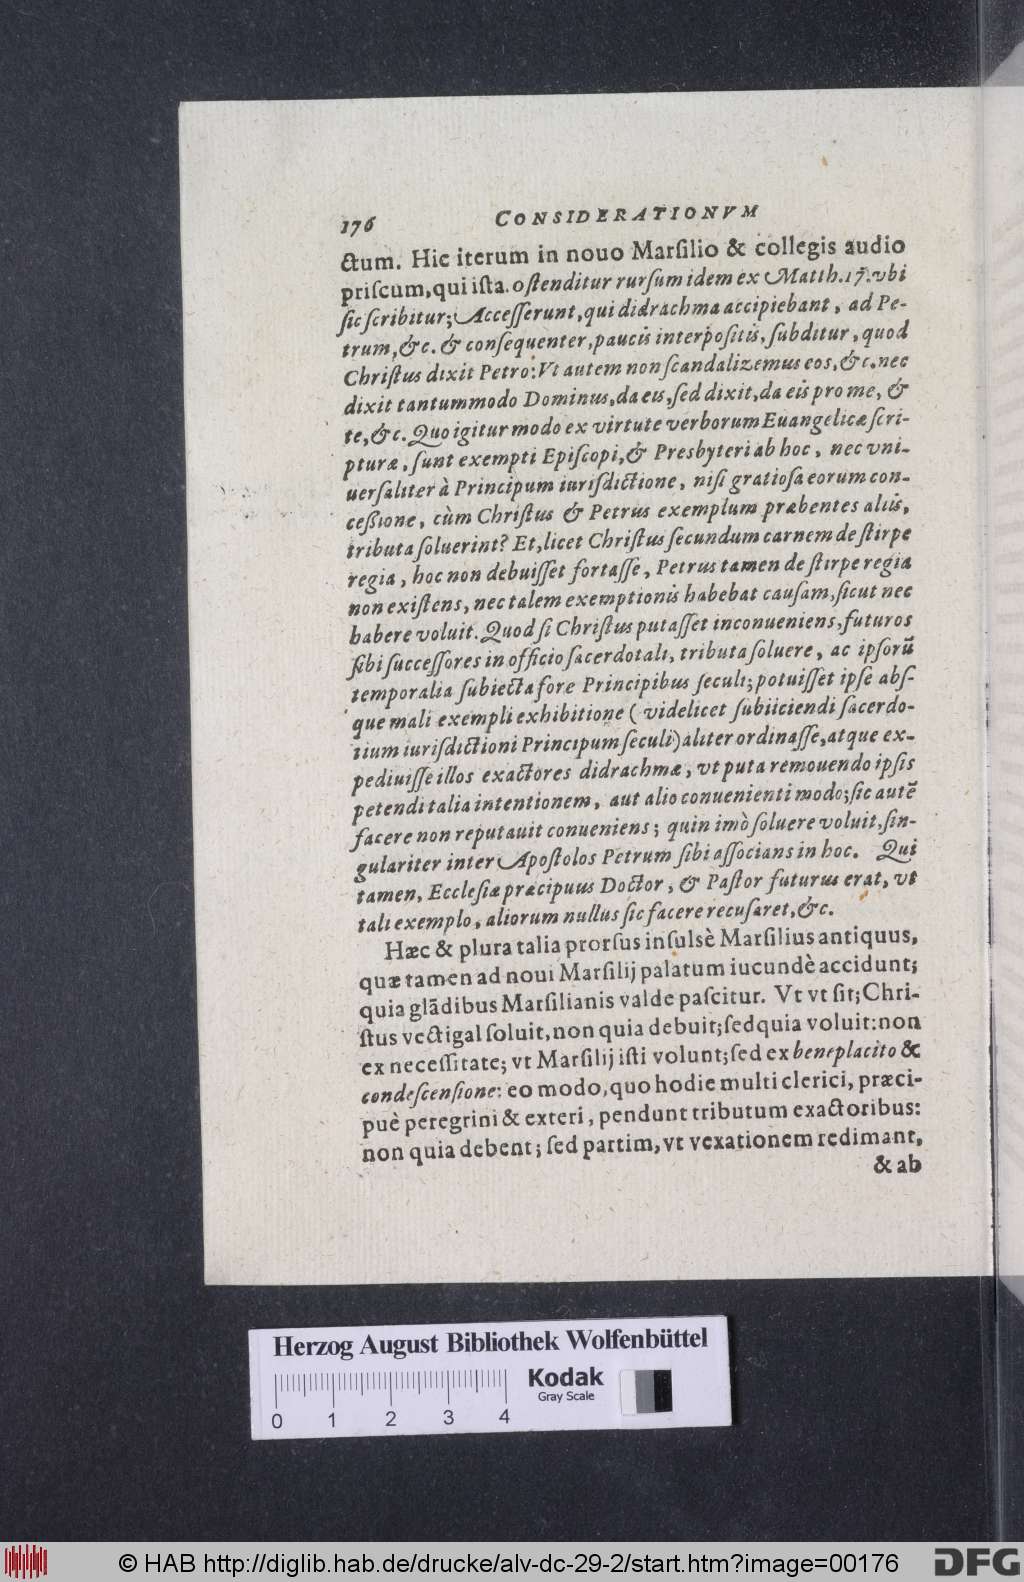 176 CONSIDERATIONVM
ctum. Hic iterum in nouo Marſilio & collegis audio
priſcum, qui iſta. oſtenditur rurſum idem ex Matth. 17. vbi
ſic ſcribitur; Acceſſerunt, qui didrachma accipiebant, ad Pe-
trum, &c. & conſequenter, paucis interpoſitis, ſubditur, quod
Chriſtus dixit Petro: Vt autem non ſcandalizemus eos, &c. nec
dixit tantummodo Dominus, da eis, ſed dixit, da eis pro me, &
te, &c. Quo igitur modo ex virtute verborum Euangelicæ ſcri-
pturæ, ſunt exempti Epiſcopi, & Presbyteri ab hoc, nec vni-
uerſaliter à Principum iuriſdictione, niſi gratioſa eorum con-
ceßione, cùm Chriſtus & Petrus exemplum præbentes aliis,
tributa ſoluerint? Et, licet Chriſtus ſecundum carnem de ſtirpe
regia, hoc non debuiſſet fortaſſe, Petrus tamen de ſtirpe regia
non exiſtens, nec talem exemptionis habebat cauſam, ſicut nec
habere voluit. Quod ſi Chriſtus putaſſet inconueniens, futuros
ſibi ſucceſſores in officio ſacerdotali, tributa ſoluere, ac ipſorũ
temporalia ſubiecta fore Principibus ſeculi; potuiſſet ipſe abſ-
que mali exempli exhibitione (videlicet ſubiiciendi ſacerdo-
tium iuriſdictioni Principum ſeculi) aliter ordinaſſe, atque ex-
pediuiſſe illos exactores didrachmæ, vt puta remouendo ipſis
petendi talia intentionem, aut alio conuenienti modo; ſic autẽ
facere non reputauit conueniens; quin imò ſoluere voluit, ſin-
gulariter inter Apoſtolos Petrum ſibi aſſocians in hoc. Qui
tamen, Eccleſiæ præcipuus Doctor, & Paſtor futurus erat, vt
tali exemplo, aliorum nullus ſic facere recuſaret, &c.
Hæc & plura talia prorſus inſulsè Marſilius antiquus,
quæ tamen ad noui Marſilij palatum iucundè accidunt;
quia glãdibus Marſilianis valde paſcitur. Vt vt ſit; Chri-
ſtus vectigal ſoluit, non quia debuit; ſed quia voluit: non
ex neceſſitate; vt Marſilij iſti volunt; ſed ex beneplacito &
condeſcenſione: eo modo, quo hodie multi clerici, præci-
puè peregrini & exteri, pendunt tributum exactoribus:
non quia debent; ſed partim, vt vexationem redimant,
& ab
Herzog August Bibliothek Wolfenbüttel
Kodak
Gray Scale
0 1 2 3 4
© HAB http://diglib.hab.de/drucke/alv-dc-29-2/start.htm?image=00176
DFG
DFG